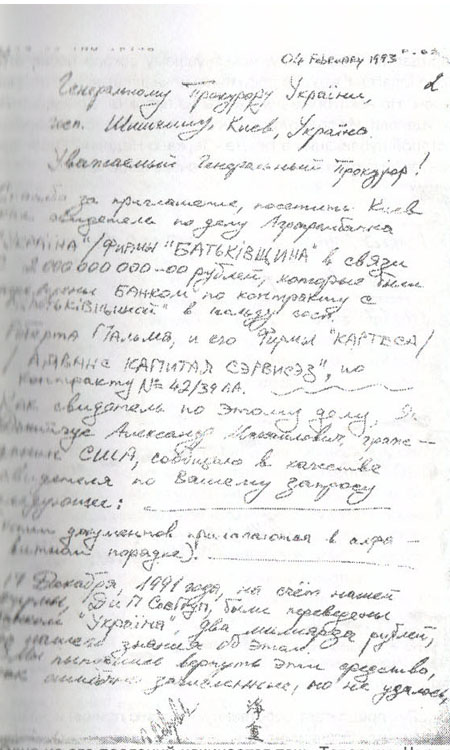 04 February 1993
2
Генеральному Прокурору Украины
госп. Шишкину, Киев, Украина.
Уважаемый Генеральный Прокурор!
за приглашение, посетить Киев
свидетеля по делу Агропромбанка
УКРАЇНА"/Фирмы "БАТЬКІВЩИНА" в связи
2 000 000 000-00 рублей, которые были
Банком по контракту с
в пользу
Роберта Пальма, и его Фирмы "КАРТЕСА/
/АДВАНС КАПИТАЛ СЭРВИСЭЗ", по
контракту № 42/39 ПА.
Как свидетель по этому делу, я
Александр Михайлович, граж-
США, сообщаю в качестве
свидетеля по Вашему запросу
следующее:
документов прилагаются в алфа-
витном порядке).
17 Декабря, 1991 года, на счёт нашей
Фирмы, были переведены
"Україна", два миллиарда рублей,
нашего знания об этом.
Мы пытались вернуть эти средства,
как ошибочно зачисленные, но не удалось,